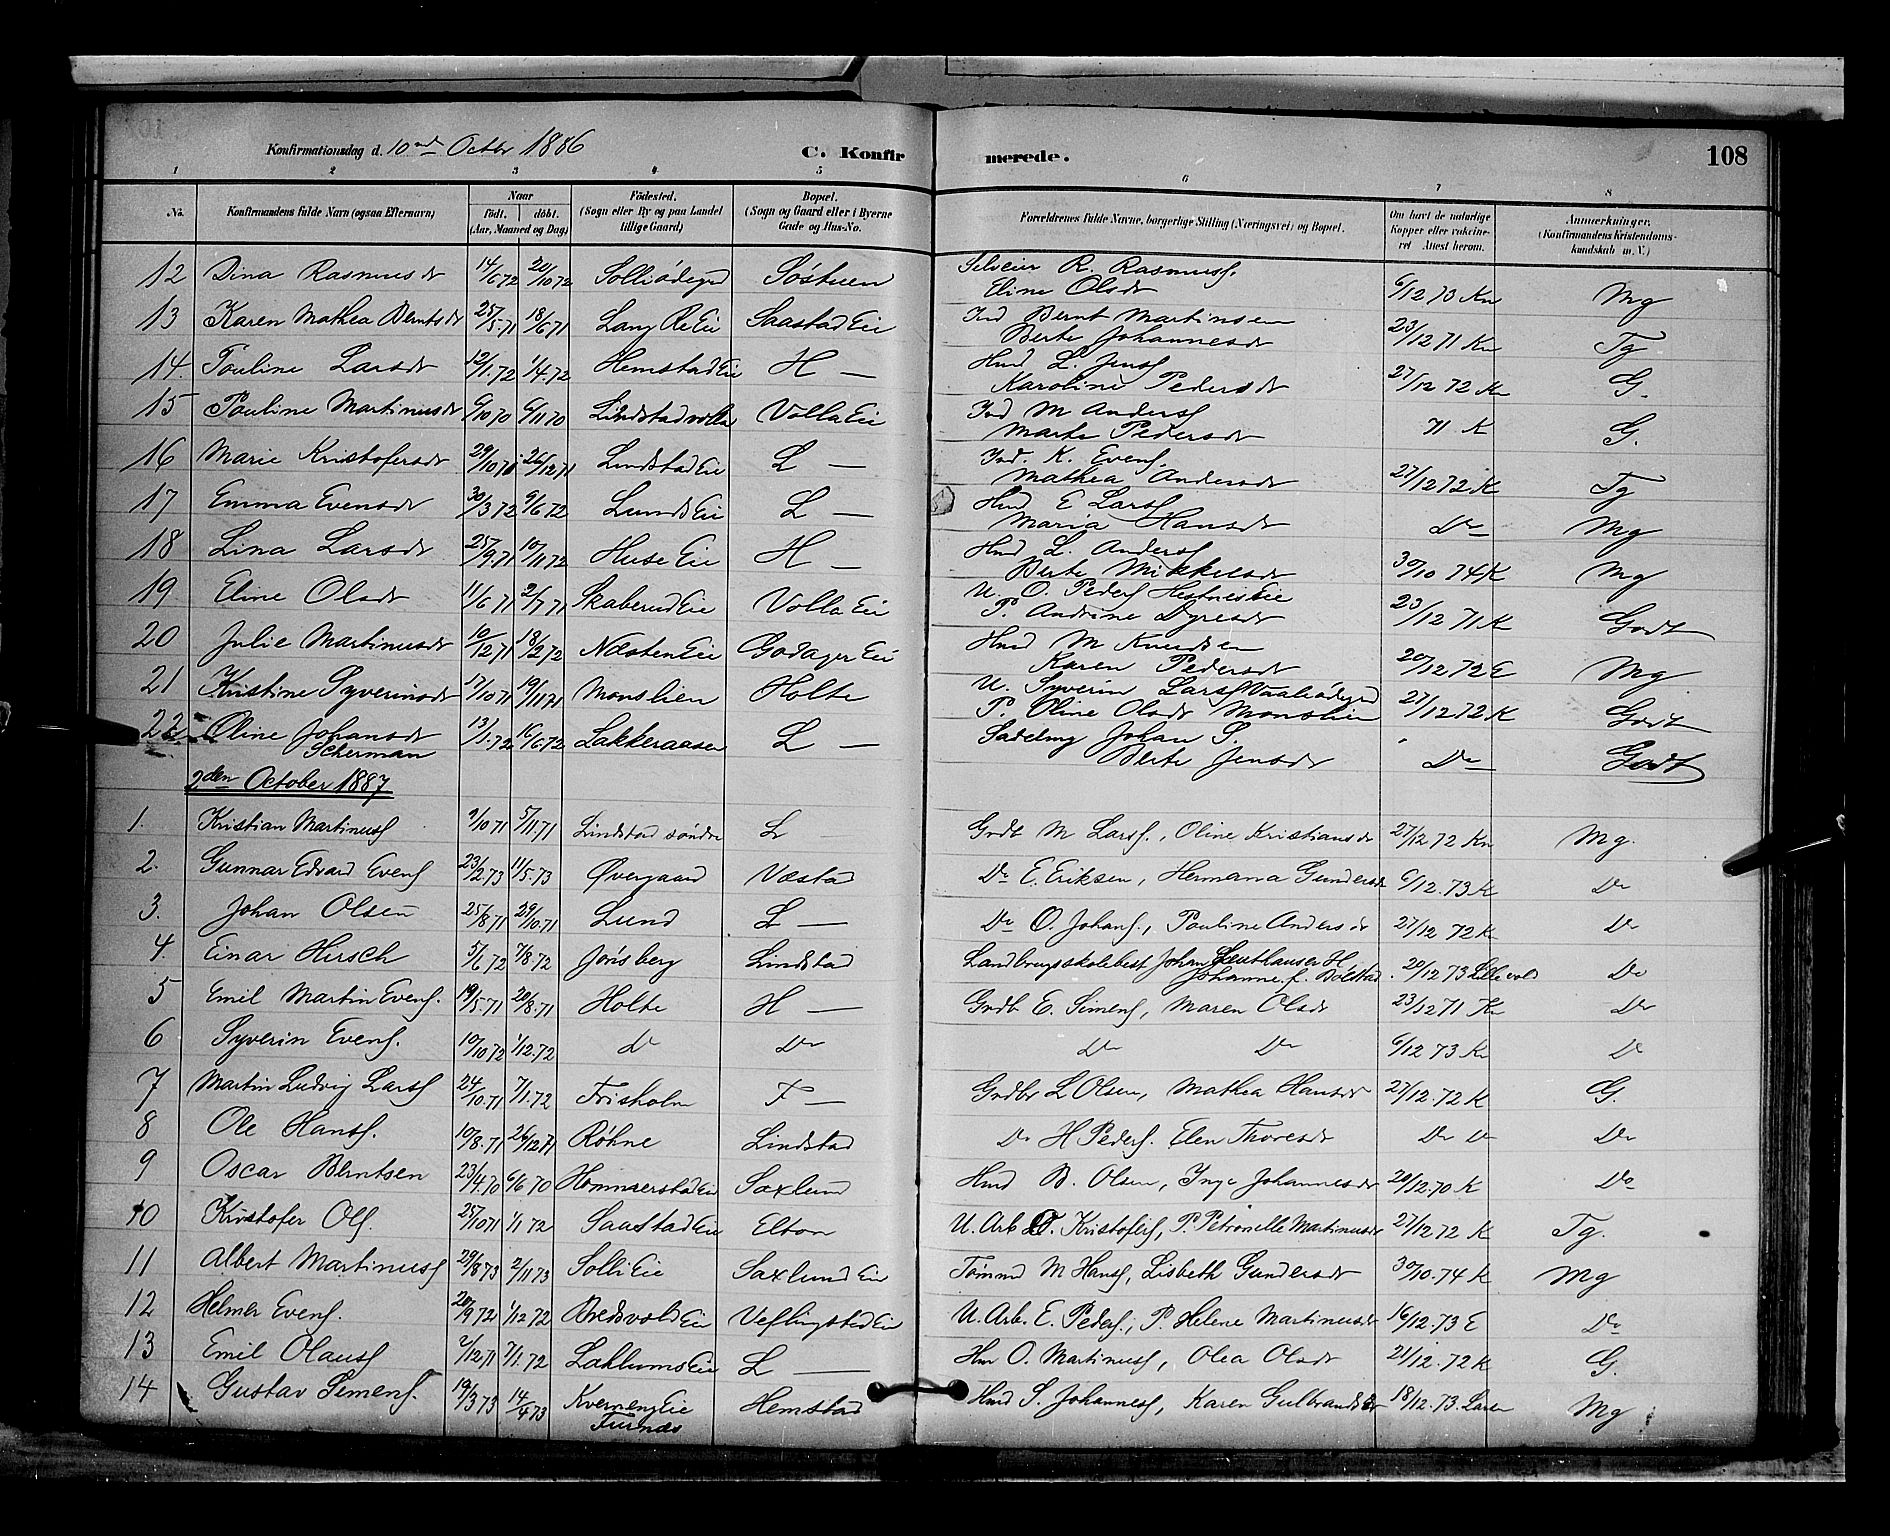 Konfirmationsdag d. 10nde Octbr 1886
C. Konfirmerede.
108
1 2 3 4 5 6 7 8
No. Konfirmandens fulde Navn (ogsaa Efternavn) Naar født. døbt. (Aar, Maaned og Dag) Födested. (Sogn eller By og paa Landet tillige Gaard) Bopæl. (Sogn og Gaard eller i Byerne Gade og Hus-No. Forældrenes fulde Navne, borgerlige Stilling (Næringsvei) og Bopæl. Om havt de naturlige Kopper eller vaccineret Attest herom. Anmærkninger. (Konfirmandens Kristendomskundskab m. V.)
12 Dina Rasmusdr 14/6 72 20/10 72 Solliødegd Sostuen Selveier R. Rasmuss. Eline Olsdr 6/12 73 Kn Mg
13 Karen Mathea Berntsdr 25/5 71 18/6 71 Lang Re Eie Saastad Eie Ind Bernt Martinsen Berte Johannesdr 23/12 71 Kn Tg
14 Pauline Larsdr 12/1 72 1/4 72 Hemstad Eie H — Hmd L. Jens. Karoline Pedersdr 27/12 72 Kn G.
15 Pauline Martinusdr 6/10 70 6/11 70 Lindstadvolla Volla Eie Ind M Anders. Marte Pedersdr 71 K G.
16 Marie Kristofersdr 29/10 71 26/12 71 Lindstad Eie L — Ind. K. Evens. Mathea Andersdr 27/12 72 K Tg
17 Emma Evensdr 30/3 72 9/6 72 Lunds Eie L — Hmd E Lars. Maria Hansdr Do Mg
18 Lina Larsdr 25/9 71 10/11 72 Huse Eie H — Hmd L. Anders. Berte Mikkelsdr 30/10 74 K Mg
19 Eline Olsdr 11/6 71 2/7 71 Skaberud Eie Volla Eie U. O. Peders. Hestnes Eie P. Andrine Dyresdr 23/12 71 K Godt
20 Julie Martinusdr 10/12 71 18/2 72 Næsten Eie Godager Eie Hmd M Knudsen Karen Pedersdr 20/12 72 E Mg
21 Kristine Syverinsdr 17/10 71 19/11 71 Monslien Holte U. Syverin Lars. P. Oline Olsdr Monslien 27/12 72 K Godt
22 Oline Johansdr Scherman 13/1 72 16/6 72 Lakkeraasen L — Sadelmg Johan S. Berte Jensdr Do Godt
2den October 1887
1. Kristian Martinuss. 9/10 71 5/11 71 Lindstad søndre L — Grdb M Lars., Oline Kristiansdr 27/12 72 Kn Mg.
2. Gunnar Edvard Evens. 23/2 73 11/5 73 Øvergaard Væstad Do E. Eriksen, Hermana Gundersdr 6/12 73 K Do
3. Johan Olsen 25/8 71 29/10 71 Lund L — Do O. Johans., Pauline Andersdr 27/12 72 Kn Do
4. Einar Hirsch 5/6 72 7/8 72 Jønsberg Lindstad Landbrugsskolebest Johan Leuthauser H. Johanne f. Bolstad. 20/12 73 Lillevold Do
5 Emil Martin Evens. 19/5 71 20/8 71 Holte H — Grdb E. Simens, Maren Olsdr 23/12 71 Kn Do
6 Syverin Evens. 10/10 72 1/12 72 do Do Do Do 6/12 73 Kn Do
7 Martin Ludvig Lars. 24/10 71 7/1 72 Frisholm F — Grdbr L Olsen, Mathea Hansdr 27/12 72 K G.
8 Ole Hans. 10/8 71 26/12 71 Røhne Lindstad Do H Peders. Elen Thoresdr Do Do Do
9 Oscar Berntsen 23/4 70 6/6 70 Hommerstad Eie Saxlund Hmd B. Olsen, Inge Johannesdr 20/12 70 K Do
10 Kristofer Ols. 25/10 71 1/1 72 Saastad Eie Elton U. Arb O. Kristofers, P. Petronelle Martinusdr 27/12 72 K Tg.
11 Albert Martinuss 29/8 73 2/11 73 Solli Eie Saxlund Eie Tømmd M Hans., Lisbeth Gundersdr 30/10 74 K Mg
12 Helmer Evens. 20/9 72 1/12 72 Bredsvold Eie Veflingstad Eie U. Arb. E. Peders., P. Helene Martinusdr 16/12 73 E Do
13 Emil Olauss 2/12 71 7/1 72 Laklums Eie L — Hm O. Martinuss, Olea Olsdr 21/12 72 K G.
14 Gustav Simens. 19/3 73 14/4 73 Kverneng Eie Furnæs Hemstad Hmd S. Johanness, Karen Gulbrandsdr 18/12 73. Mg